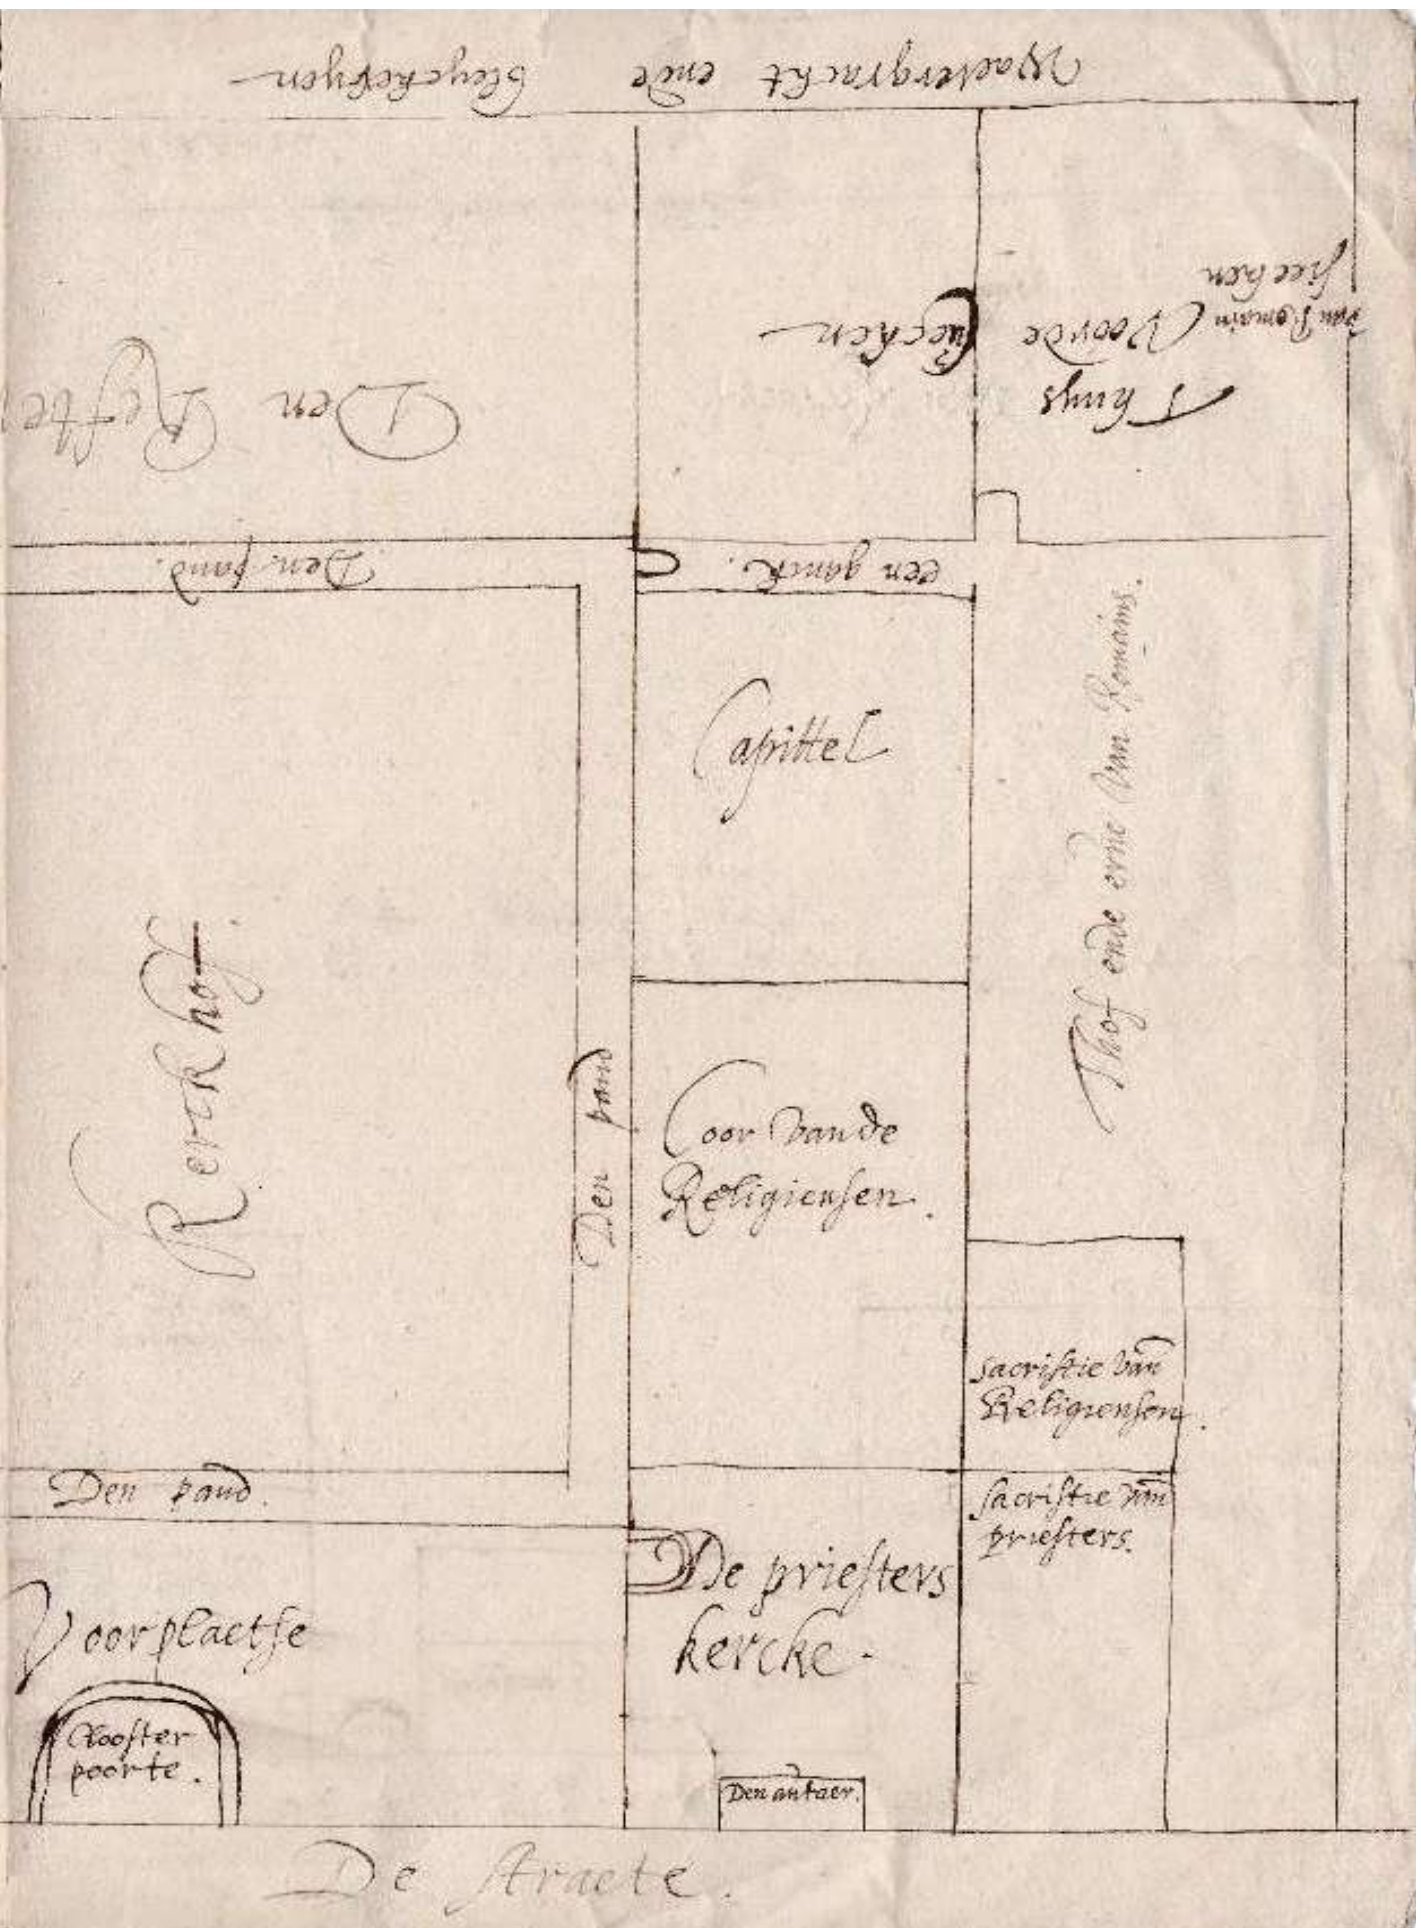 Watergracht ende bleyckeryen
Thuys
van Romain Voorde
siecken
Siecken
Den Refter
Den pand.
een ganck.
Capittel
Thof ende erve van Romains.
Kerckhof.
Den pand
Coor vande
Religieusen.
sacristie van
Religieusen.
Den pand.
sacristie van
priesters.
De priesters
kercke.
Voorplaetse
Clooster
poorte.
Den autaer.
De straete.